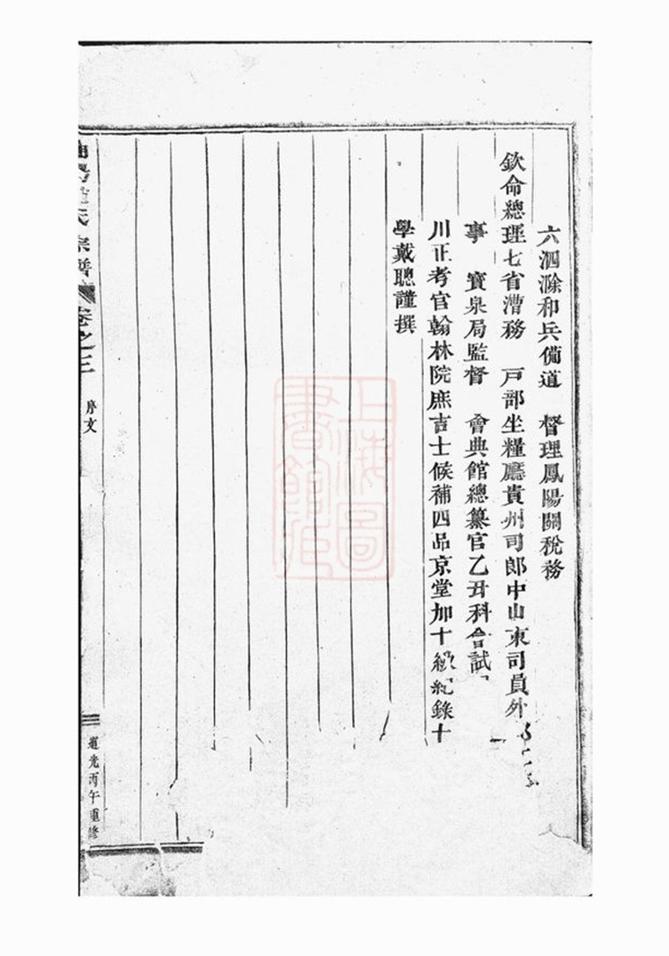 六泗滁和兵備道　督理鳳陽關稅務
欽命總理七省漕務　戶部坐糧廳貴州司郎中山東司員外
事　寶泉局監督　會典館總纂官乙丑科會試
川正考官翰林院庶吉士候補四品京堂加十級紀錄十
學戴聰謹撰
氏宗譜
卷之三
序文
道光丙午重修
上海圖書館藏